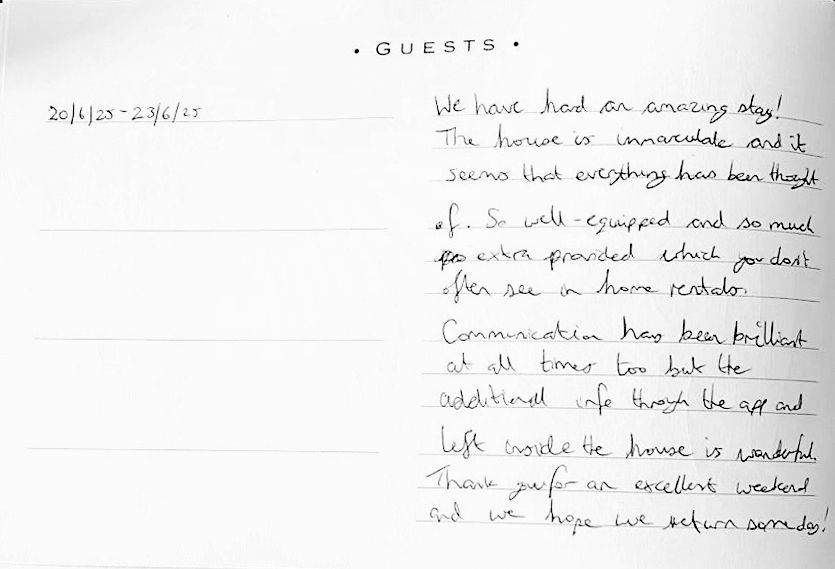 • GUESTS •
20/6/25 - 23/6/25
We have had an amazing stay!
The house is immaculate and it
seems that everything has been thought
of. So well-equipped and so much
extra provided which you don't
often see in home rentals.
Communication has been brilliant
at all times too but the
additional info through the app and
left inside the house is wonderful.
Thank you for an excellent weekend
and we hope we return someday!